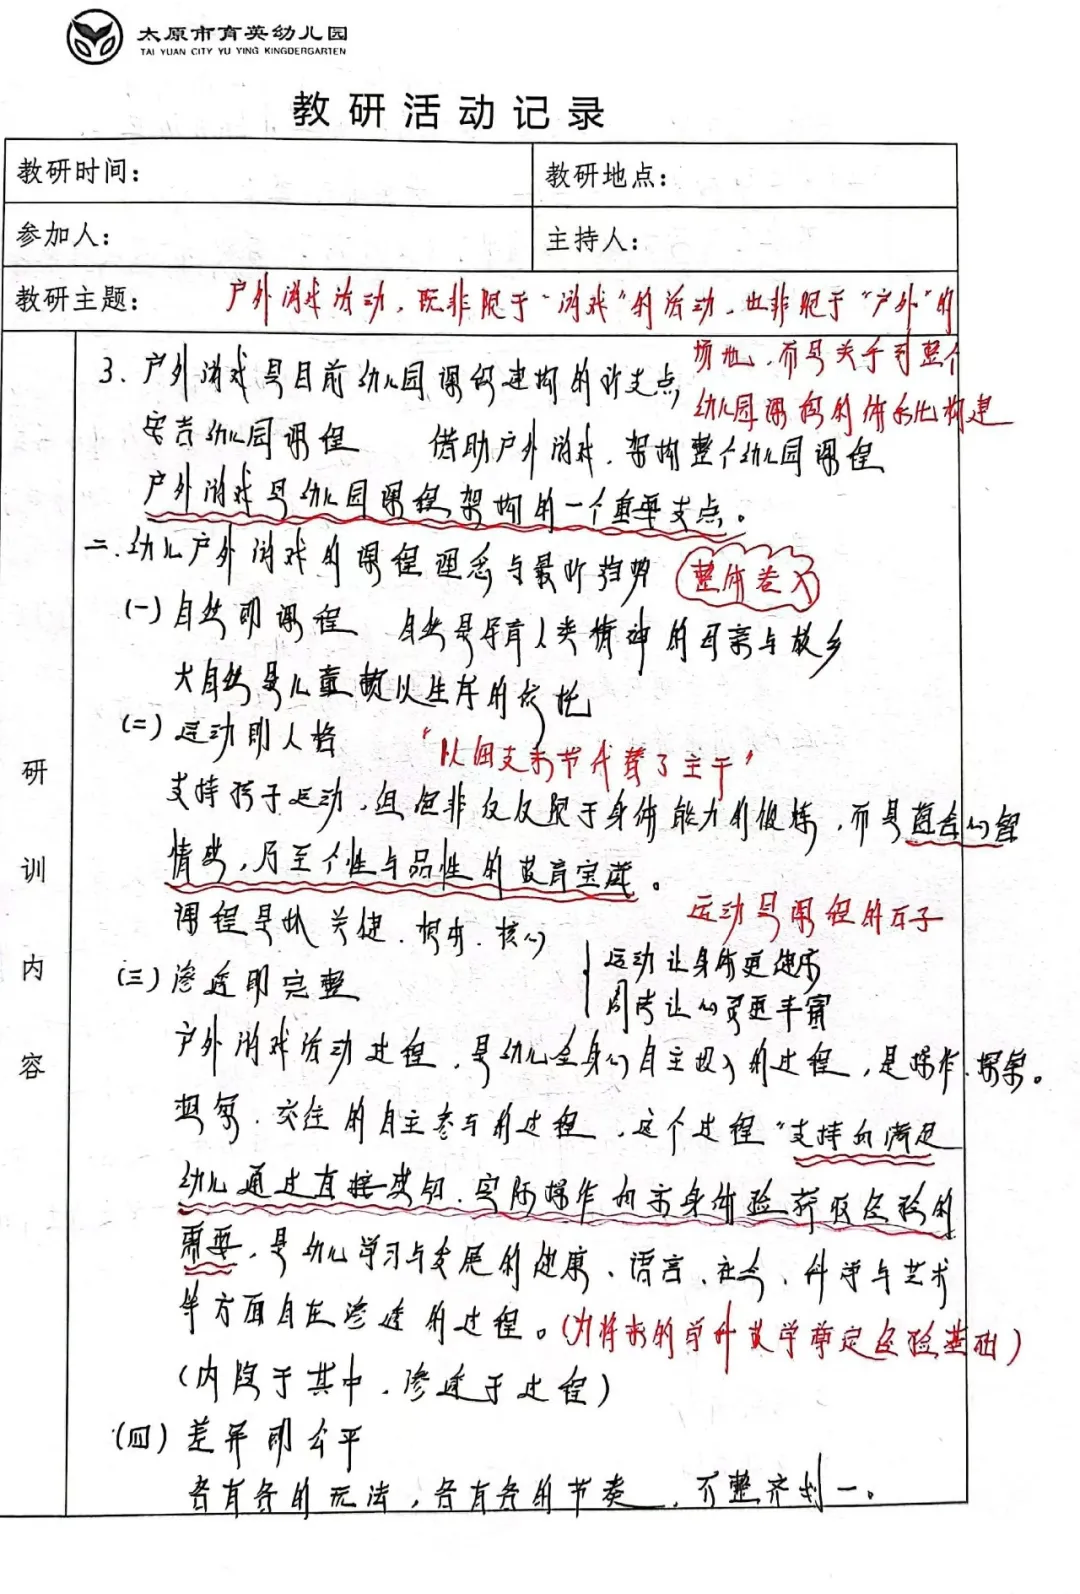 太原市育英幼儿园
TAI YUAN CITY YU YING KINGDERGARTEN
教研活动记录
教研时间：
教研地点：
参加人：
主持人：
教研主题：
户外游戏活动，既非限于“游戏”的活动，也非限于“户外”的
场地，而是关乎到整个
幼儿园课程的体系化构建
研训内容
3. 户外游戏是目前幼儿园课程建构的新支点
安吉幼儿园课程 借助户外游戏，架构整个幼儿园课程
户外游戏是幼儿园课程架构的一个重要支点。
二.幼儿户外游戏的课程理念与最新趋势
整体卷入
(一)自然即课程 自然是孕育人类精神的母亲与故乡
大自然是儿童赖以生存的依托
(二)运动即人格
“以细支末节代替了主干”
支持孩子运动，但非仅仅限于身体能力的锻炼，而是蕴含心智
情感，乃至个性与品性的教育宝藏。
课程是抓关键、根本、核心
运动是课程的因子
运动让身体更健康
阅读让心灵更丰富
(三)渗透即完整
户外游戏活动过程，是幼儿全身心自主投入的过程，是操作、探索。
想象、交往的自主参与的过程，这个过程“支持和满足
幼儿通过直接感知、实际操作和亲身体验获取经验的
需要，是幼儿学习与发展的健康、语言、社会、科学与艺术
等方面自在渗透的过程。
(为将来的学科教学奠定经验基础)
(内隐于其中，渗透于过程)
(四)差异即公平
各有各的玩法，各有各的节奏，不整齐划一。